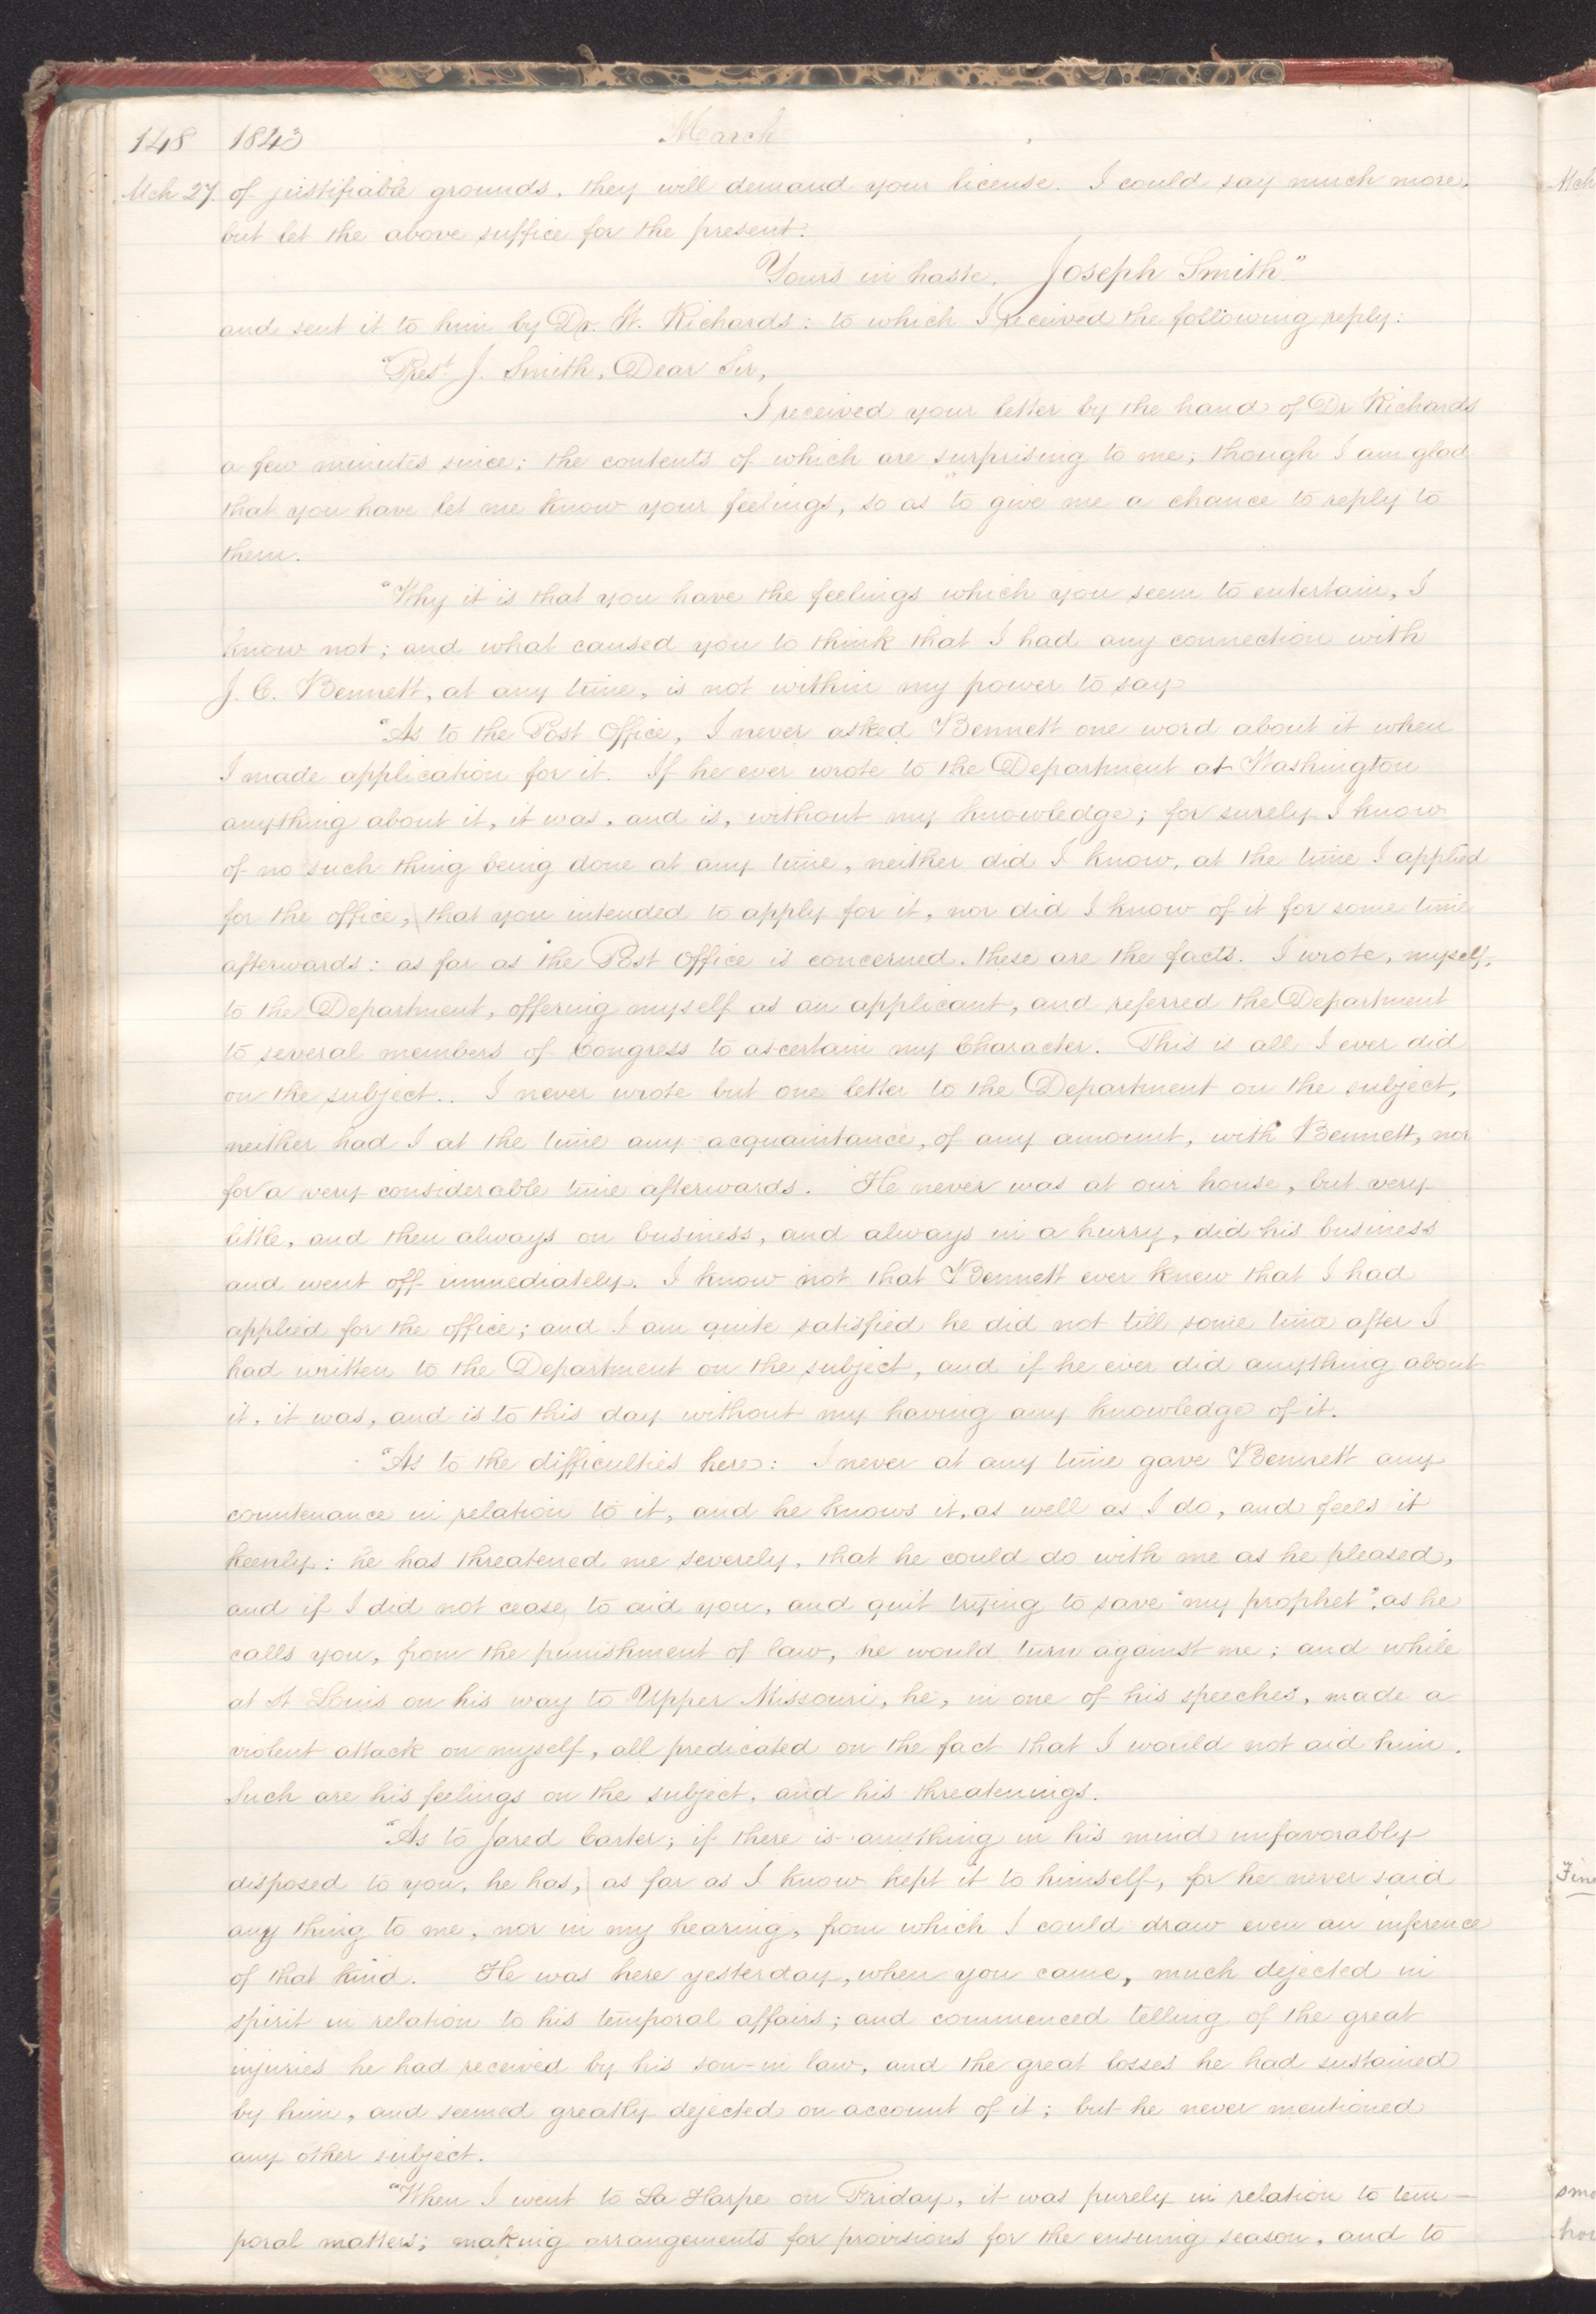 148 1843 March
Mch 27. of justifiable grounds, they will demand your license. I could say much more,
but let the above suffice for the present.
Yours in haste, Joseph Smith."
and sent it to him by Dr. W. Richards: to which I received the following reply:
"Prest. J. Smith, Dear Sir,
I received your letter by the hand of Dr Richards
a few minutes since; the contents of which are surprising to me; though I am glad
that you have let me know your feelings, so as to give me a chance to reply to
them.
"Why it is that you have the feelings which you seem to entertain, I
know not; and what caused you to think that I had any connection with
J. C. Bennett, at any time, is not within my power to say
"As to the Post Office, I never asked Bennett one word about it when
I made application for it. If he ever wrote to the Department at Washington
anything about it, it was, and is, without my knowledge; for surely I know
of no such thing being done at any time, neither did I know, at the time I applied
for the office, that you intended to apply for it, nor did I know of it for some time
afterwards: as far as the Post Office is concerned, these are the facts. I wrote, myself,
to the Department, offering myself as an applicant, and referred the Department
to several members of Congress to ascertain my Character. This is all I ever did
on the subject.. I never wrote but one letter to the Department on the subject,
neither had I at the time any acquaintance, of any amount, with Bennett, nor
for a very considerable time afterwards. He never was at our house, but very
little, and then always on business, and always in a hurry, did his business
and went off immediately. I know not that Bennett ever knew that I had
applied for the office; and I am quite satisfied he did not till some time after I
had written to the Department on the subject, and if he ever did anything about
it, it was, and is to this day without my having any knowledge of it.
"As to the difficulties here: I never at any time gave Bennett any
countenance in relation to it, and he knows it, as well as I do, and feels it
keenly: he has threatened me severely, that he could do with me as he pleased,
and if I did not cease to aid you, and quit trying to save "my prophet", as he
calls you, from the punishment of law, he would turn against me; and while
at St Louis on his way to Upper Missouri, he, in one of his speeches, made a
violent attack on myself, all predicated on the fact that I would not aid him.
Such are his feelings on the subject, and his threatenings.
"As to Jared Carter; if there is anything in his mind unfavorably
disposed to you, he has, as far as I know kept it to himself, for he never said
any thing to me, nor in my hearing, from which I could draw even an inference
of that kind. He was here yesterday, when you came, much dejected in
spirit in relation to his temporal affairs; and commenced telling of the great
injuries he had received by his son-in law, and the great losses he had sustained
by him, and seemed greatly dejected on account of it; but he never mentioned
any other subject.
"When I went to La Harpe on Friday, it was purely in relation to tem-
poral matters; making arrangements for provisions for the ensuing season, and to
Mch